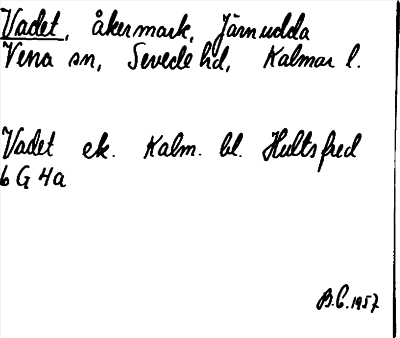 Vadet, åkermark, Järnudda
Vena sn, Sevede hd, Kalmar l.
Vadet ek. Kalm. bl. Hultsfred
6 G 4a
B.C. 1957